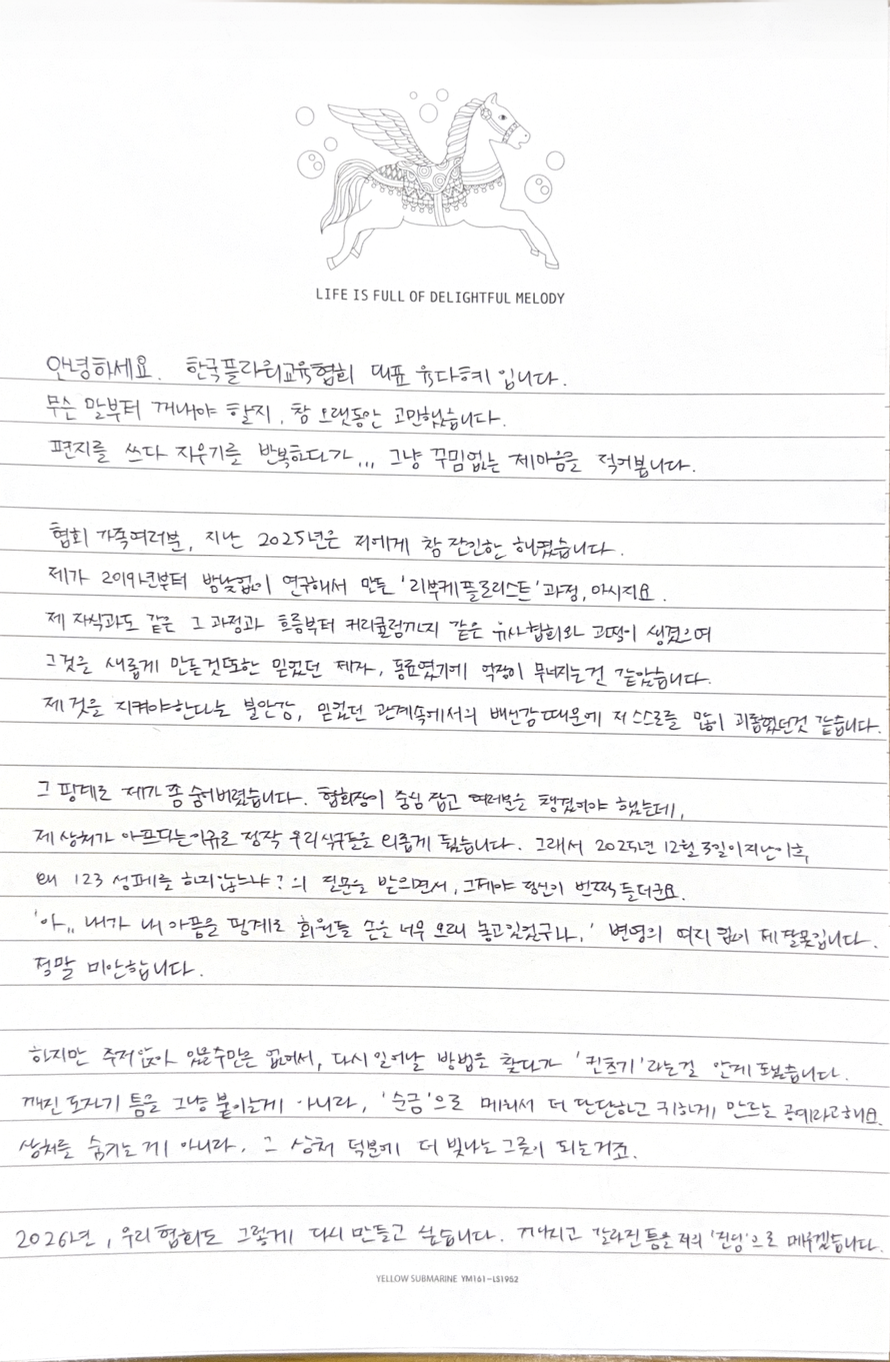 LIFE IS FULL OF DELIGHTFUL MELODY
안녕하세요. 한국플라워교육협회 대표 유다혜 입니다.
무슨 말부터 꺼내야 할지, 참 오랫동안 고민했습니다.
편지를 쓰다 지우기를 반복하다가... 그냥 꾸밈없는 제마음을 적어봅니다.
협회 가족여러분, 지난 2025년은 저에게 참 잔인한 해였습니다.
제가 2019년부터 밤낮없이 연구해서 만든 '리부케플로리스트' 과정, 아시지요.
제 자식과도 같은 그 과정과 흐름부터 커리큘럼까지 같은 유사협회와 과정이 생겼으며
그것을 새롭게 만든것또한 믿었던 제자, 동료였기에 억장이 무너지는건 같았습니다.
제것을 지켜야한다는 불안감, 믿었던 관계속에서의 배신감때문에 저 스스로를 많이 괴롭혔던것 같습니다.
그 핑계로 제가 좀 숨어버렸습니다. 협회장이 중심 잡고 여러분을 챙겼어야 했는데,
제 상처가 아프다는이유로 정작 우리식구들을 외롭게 뒀습니다. 그래서 2025년 12월 3일이지난이후,
왜 123 성페를 하지않느냐? 의 질문을 받으면서, 그제야 정신이 번쩍 들더군요.
'아.. 내가 내 아픔을 핑계로 회원들 손을 너무 오래 놓고있었구나.' 변명의 여지 없이 제 잘못입니다.
정말 미안합니다.
하지만 주저앉아 있을수만은 없어서, 다시 일어날 방법을 찾다가 '킨츠기'라는걸 알게 되었습니다.
깨진 도자기 틈을 그냥 붙이는게 아니라, '순금'으로 메워서 더 단단하고 귀하게 만드는 공예라고해요.
상처를 숨기는 게 아니라, 그 상처 덕분에 더 빛나는 그릇이 되는거죠.
2026년, 우리 협회도 그렇게 다시 만들고 싶습니다. 깨지고 갈라진 틈을 저의 '진심'으로 메우겠습니다.
YELLOW SUBMARINE YM161-LS1952